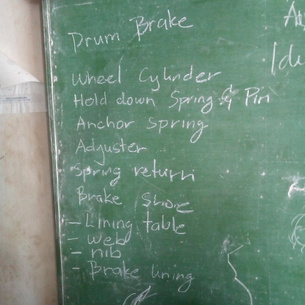 Drum Brake
Wheel Cylinder
Hold down Spring & Pin
Anchor spring
Adjuster
Spring return
Brake Shoe
- Lining table
- web
- nib
- Brake lining